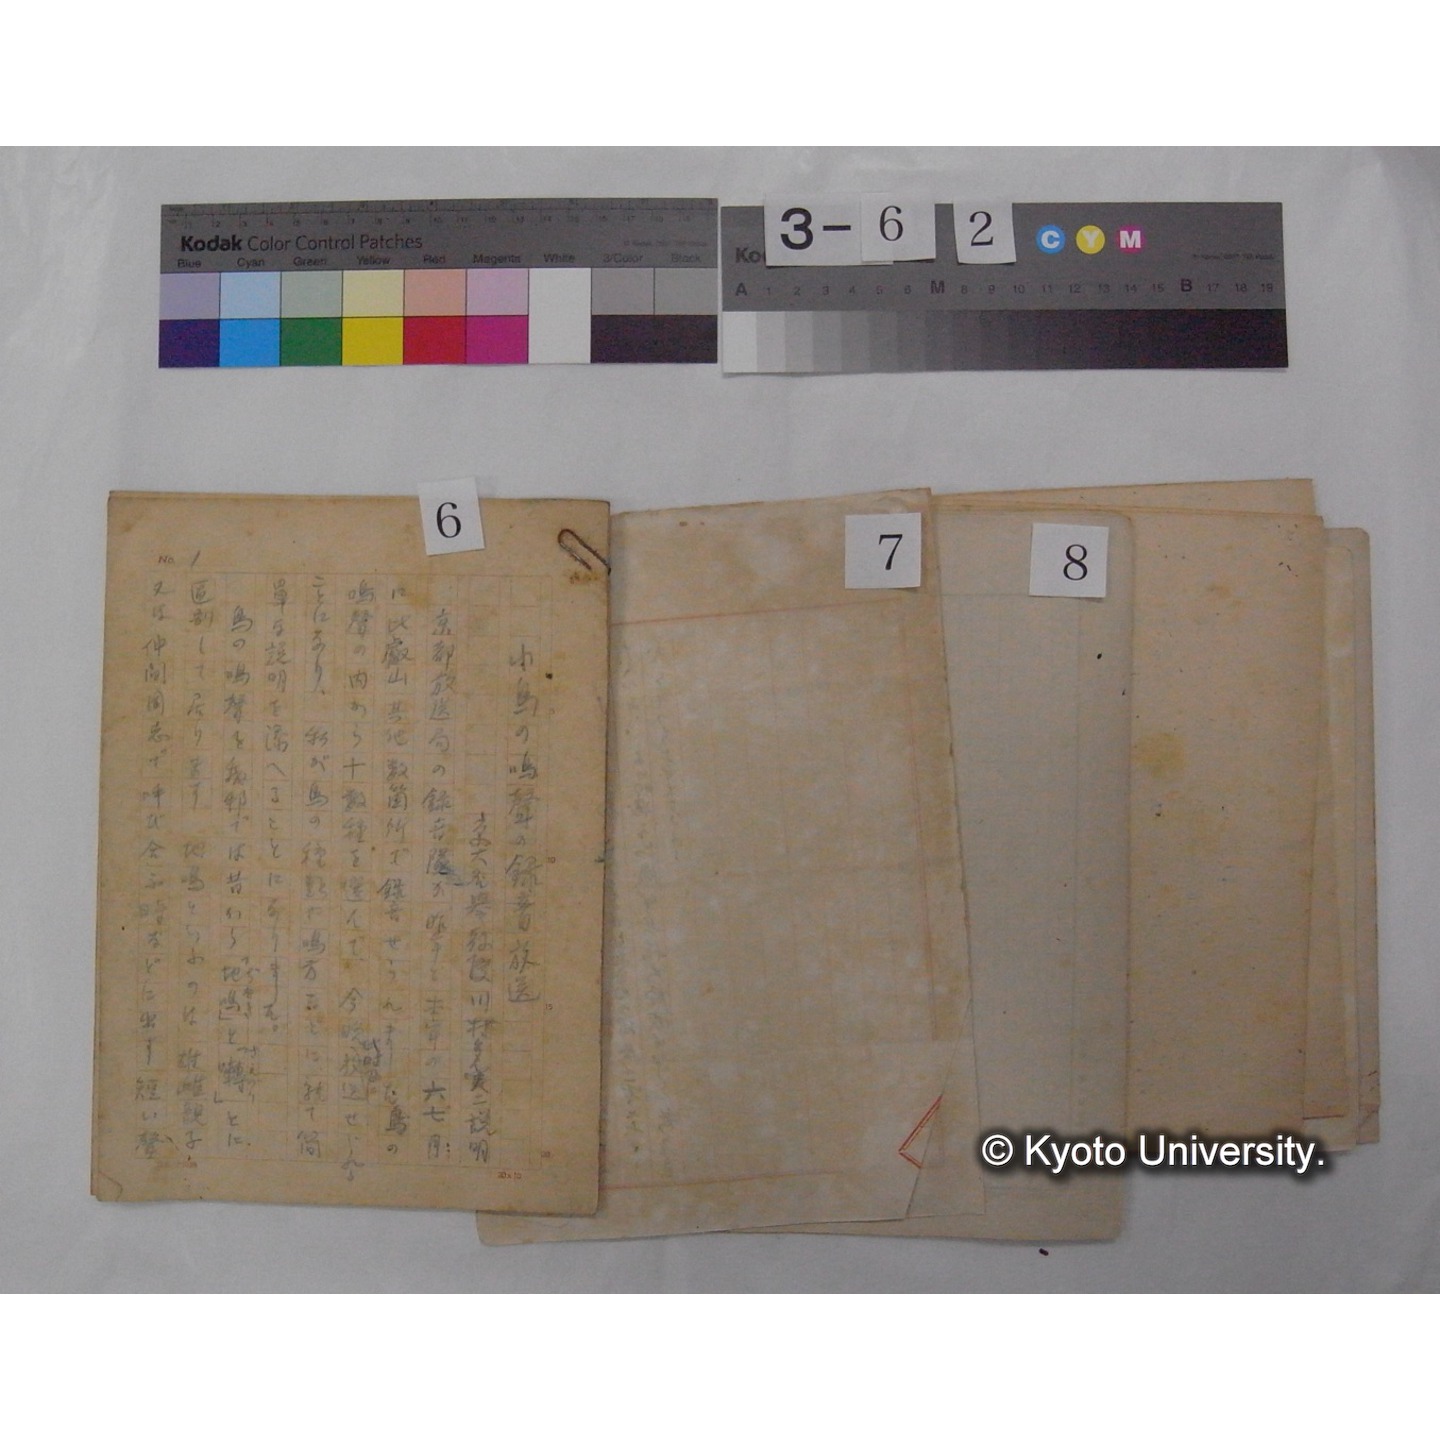 Kodak Color Control Patches
Blue Cyan Green Yellow Red Magenta White 3/Color Black
3-6 2
C Y M
Ko
A 1 2 3 4 5 6 M 8 9 10 11 12 13 14 15 B 17 18 19
6
7
8
No. 1
小鳥の鳴聲の録音放送
川村多実二説明
京都放送局の録音隊が昨年と本年の六七月
に比叡山其他数箇所で録音せられました鳥の
鳴聲の内から十数種を選んで、今晩放送せられる
ことになり、私が鳥の種類や鳴方などに就て簡
単な説明を添へることになりました。
鳥の鳴聲を我邦では昔から「地鳴」と「囀」とに
区別して居ります 地鳴といふのは雄雌親子
又は仲間同志で呼び合ふ時などに出す短い聲
20×10
© Kyoto University.